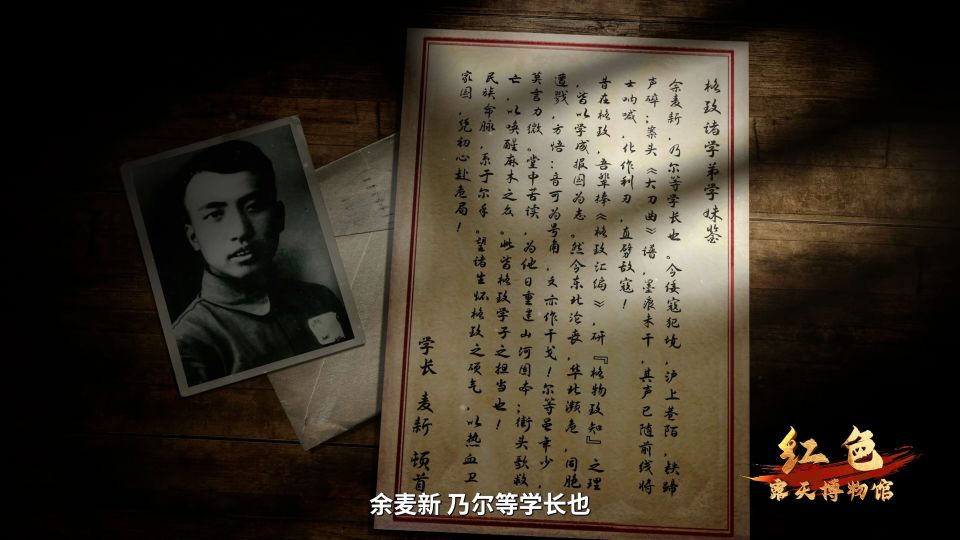 格致诸学弟学妹鉴
余麦新，乃尔等学长也。今倭寇犯境，沪上巷陌，铁蹄
声碎；案头《大刀曲》谱，墨痕未干，其声已随前线将
士呐喊，化作利刃，直劈敌寇！
昔在格致，吾辈捧《格致汇编》，研『格物致知』之理
，皆以学成报国为志。然今东北沦丧，华北濒危，同胞
遭戮，方悟：音可为号角，文亦作干戈！尔等虽年少，
莫言力微。堂中苦读，为他日重建山河固本；街头歌救
亡，以唤醒麻木之众。此皆格致学子之担当也！
民族命脉，系于尔手。望诸生怀格致之硕气，以热血卫
家国，凭初心赴危局！
学长 麦新 顿首
余麦新 乃尔等学长也
红色
露天博物馆